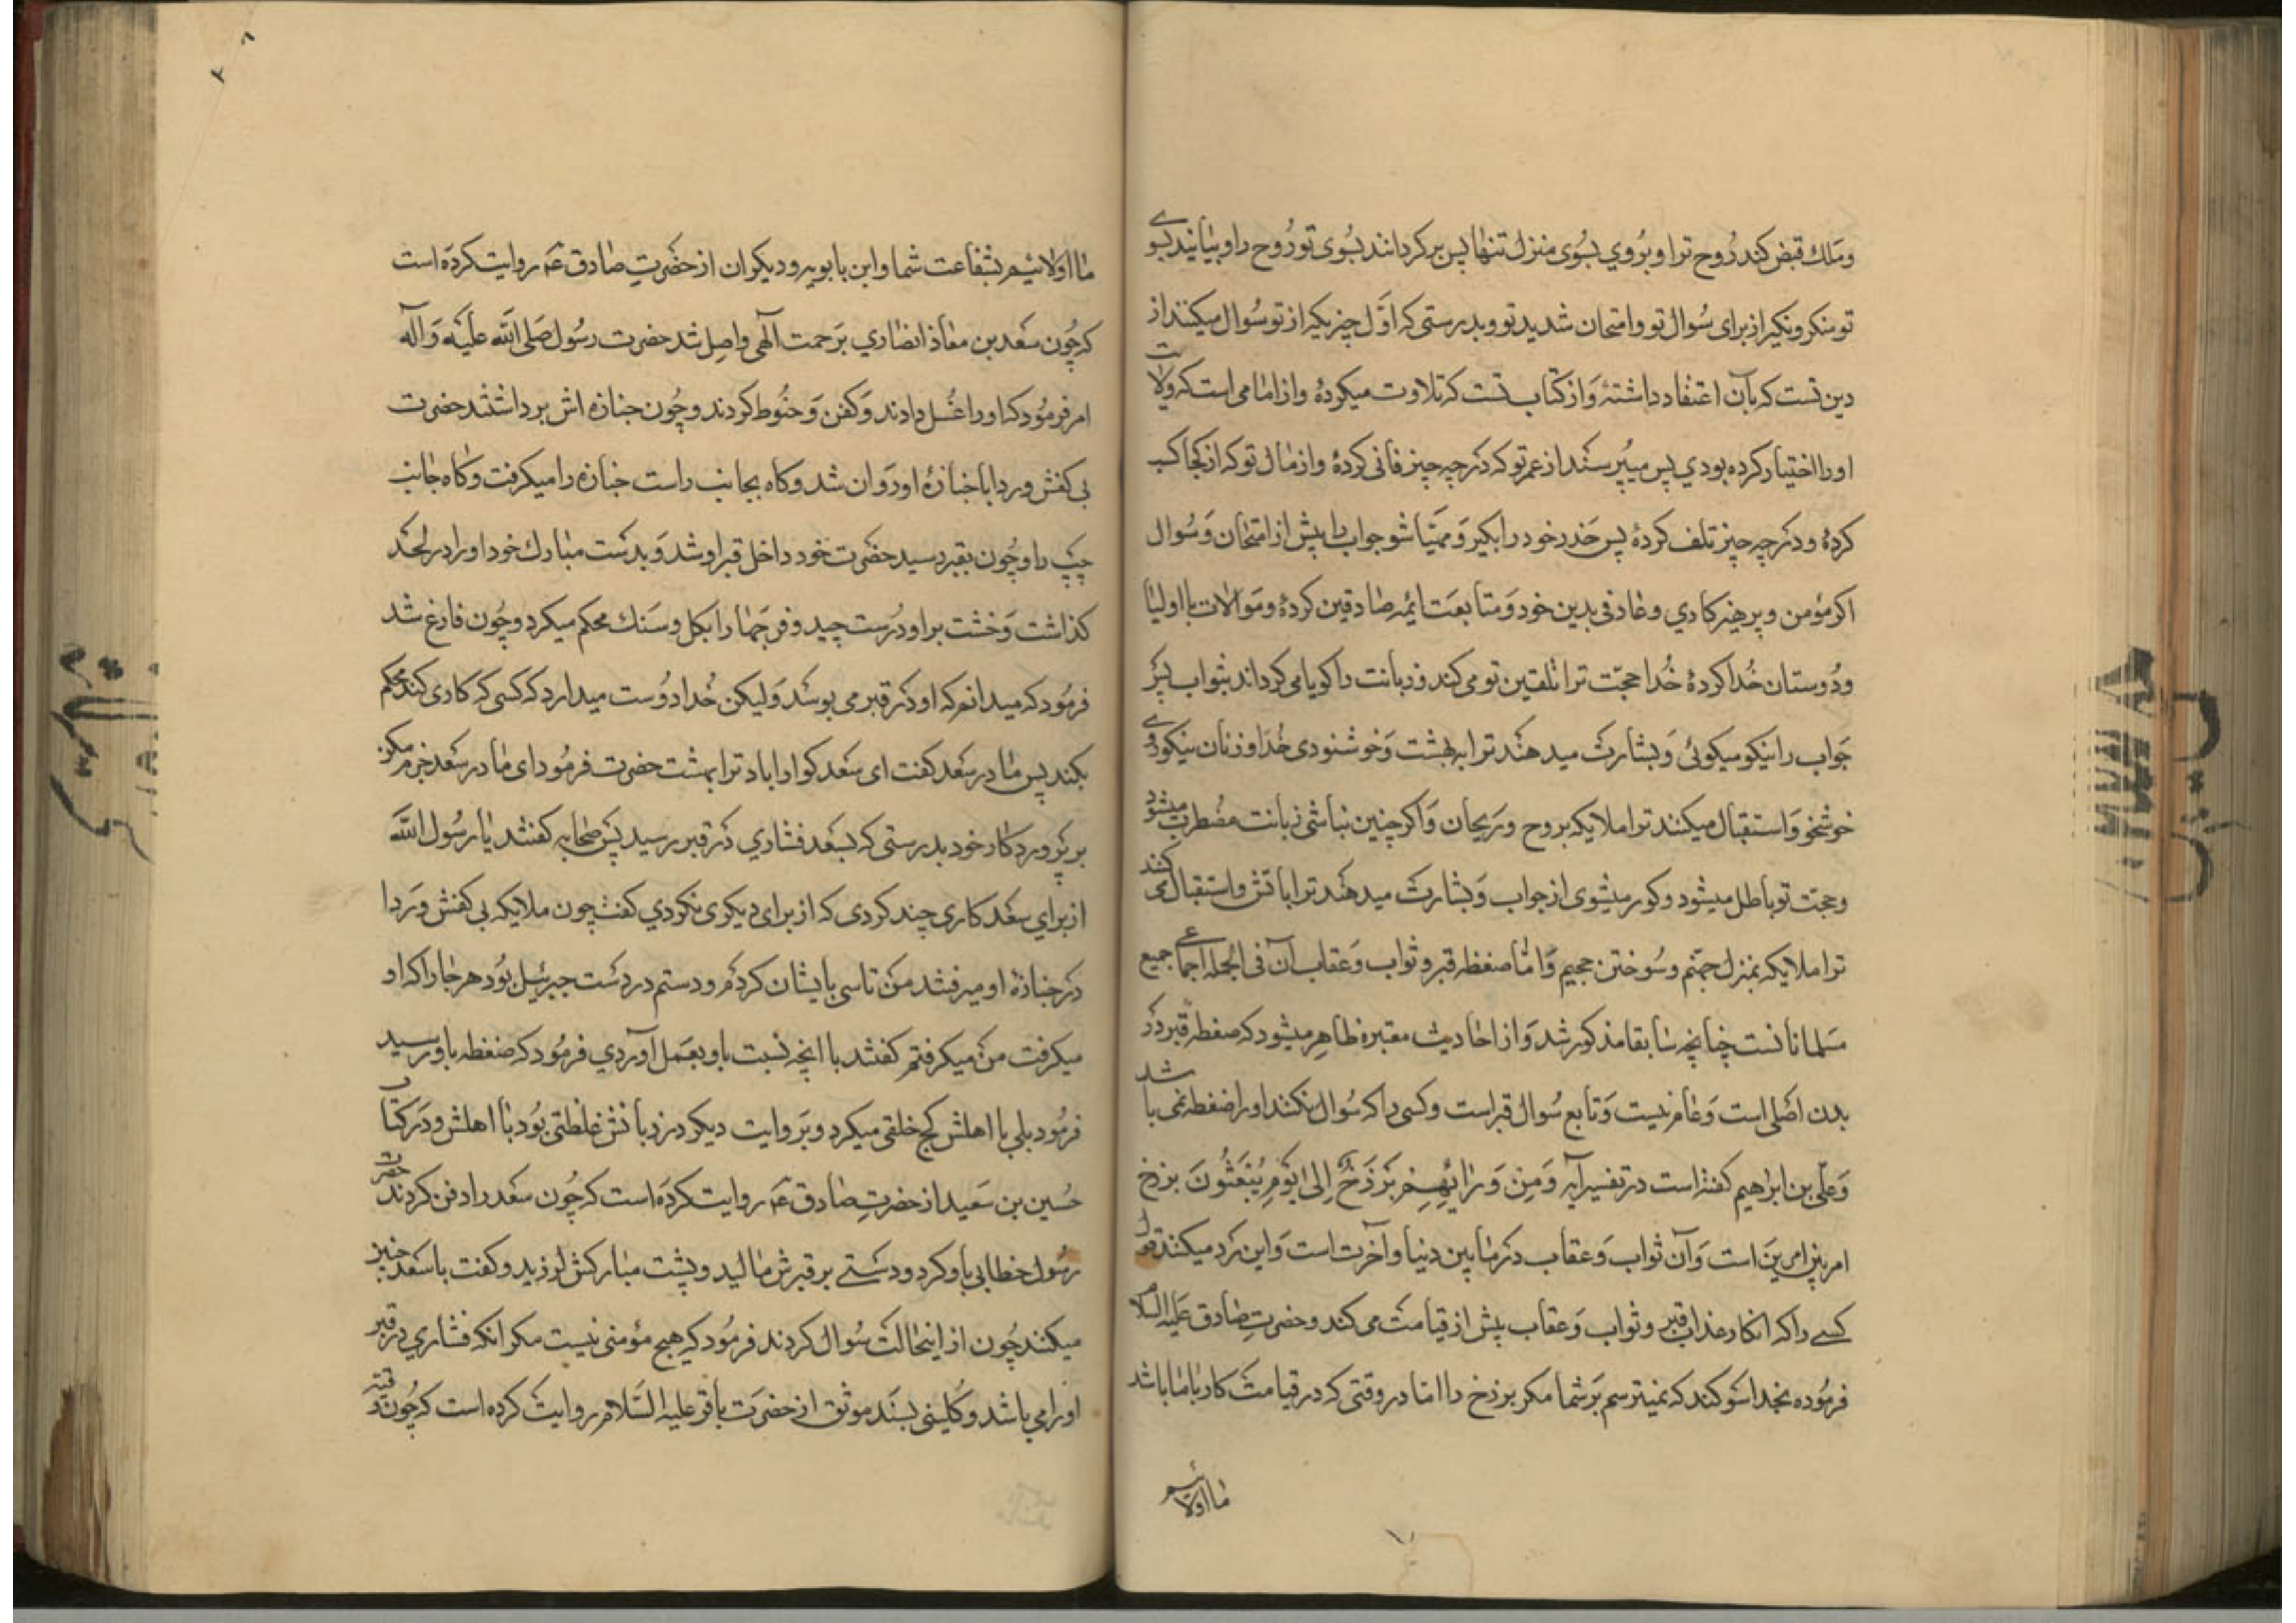 وملك قبض كند روح ترا و بروی بسوی منزل تنها پس بر كردانند بسوی تو روح را و بیایند بسوے
تو منكر و نكیر از برای سوال تو و امتحان شدید تو و بدرستی كه اول چیزیكه از تو سوال میكنند از
دین تست كه بآن اعتقاد داشتهٔ و از كتاب تست كه تلاوت میكردهٔ و از امامی است كه ولایت
او را اختیار كرده بودی پس میپرسند از عمر تو كه در چه چیز فانی كردهٔ و از مال تو كه از كجا كسب
كردهٔ و در چه چیز تلف كردهٔ پس حذر خود را بكیر و مهیا شو جواب را پیش از امتحان و سوال
اكر مؤمن و پرهیزكاری و عارفی بدین خود و متابعت ایمه صادقین كردهٔ و موالات با اولیا
و دوستان خدا كردهٔ خدا حجت ترا تلقین تو می كند و زبانت را كویا می كرداند بثواب پس
جواب را نیكو میكوئی و بشارت میدهند ترا ببهشت و خوشنودی خدا و زنان نیكو روے
خوشخو و استقبال میكنند ترا ملایكه بروح و ریحان و اكر چنین نباشی زبانت مضطرب میشود
و حجت تو باطل میشود و كور میشوی از جواب و بشارت میدهند ترا باتش و استقبال می كنند
ترا ملایكه بنزل جهنم و سوختن جحیم و اما ضغطه قبر و ثواب و عقاب آن فی الجمله اجماعے جمیع
مسلمانانست چنانچه سابقا مذكور شد و از احادیث معتبره ظاهر میشود كه ضغطه قبر در
بدن اصلی است و عام نیست و تابع سوال قبر است و كسی را كه سوال نكنند او را ضغطه نمی باشد
و علی بن ابراهیم كفته است در تفسیر آیه وَمِن وَرَائِهِم بَرْزَخٌ إِلىٰ يَوْمِ يُبْعَثُونَ برزخ
امر بین امرین است و آن ثواب و عقاب در مابین دنیا و آخرت است و این رد میكند قول
كسے را كه انكار عذاب قبر و ثواب و عقاب پیش از قیامت می كند و حضرت صادق علیه السلام
فرموده بخدا سوكند كه نمیترسم بر شما مكر برزخ را اما در وقتی كه در قیامت كار با ما باشد
ما اولائیم
ما اولائیم بشفاعت شما و ابن بابویه و دیكران از حضرت صادق عم روایت كرده است
كه چون سعد بن معاذ انصاری برحمت آلهی واصل شد حضرت رسول صلی الله علیه و آله
امر فرمود كه او را غسل دادند و كفن و حنوط كردند و چون جنازه اش برداشتند حضرت
بی كفش و ردا با جنازهٔ او روان شد و كاه بجانب راست جنازه را میكرفت و كاه جانب
چپ را و چون بقبر رسید حضرت خود داخل قبر او شد و بدست مبارك خود او را در لحد
كذاشت و خشت بر او درست چید و فرجها را بكل و سنك محكم میكرد و چون فارغ شد
فرمود كه میدانم كه او در قبر می پوسد ولیكن خدا دوست میدارد كه كسی كه كاری كند محكم
بكند پس مادر سعد كفت ای سعد كوارا باد ترا بهشت حضرت فرمود ای مادر سعد جزم مكن
بر پروردكار خود بدرستی كه بسعد فشاری در قبر رسید پس صحابه كفتند یا رسول الله
از برای سعد كاری چند كردی كه از برای دیكری نكردی كفت چون ملایكه بی كفش و ردا
در جنازهٔ او میرفتند من تاسی بایشان كردم و دستم در دست جبرئیل بود هر جا را كه او
میكرفت من میكرفتم كفتند با انچه نسبت باو بعمل آوردی فرمود كه ضغطه باو رسید
فرمود بلی با اهلش كج خلقی میكرد و بروایت دیكر در زبانش غلظتی بود با اهلش و در كتاب
حسین بن سعید از حضرت صادق عم روایت كرده است كه چون سعد را دفن كردند حضرت
رسول خطابی باو كرد و دستے بر قبرش مالید و پشت مباركش لرزید و كفت با سعد چنین
میكنند چون از اینحالت سوال كردند فرمود كه هیچ مؤمنی نیست مكر انكه فشاری در قبر
او را می باشد و كلینی بسند موثق از حضرت باقر علیه السلام روایت كرده است كه چون رقیه